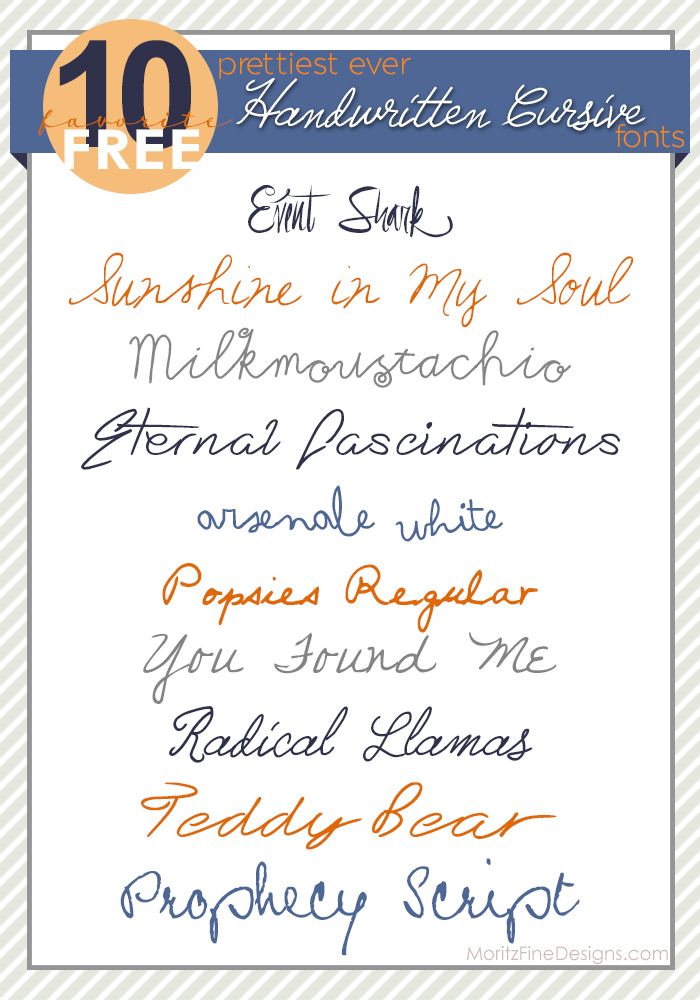 10
favorite
FREE
prettiest ever
Handwritten Cursive
fonts
Event Shark
Sunshine in My Soul
Milkmoustachio
Eternal Fascinations
arsenale white
Popsies Regular
You Found Me
Radical Llamas
Teddy Bear
Prophecy Script
MoritzFineDesigns.com